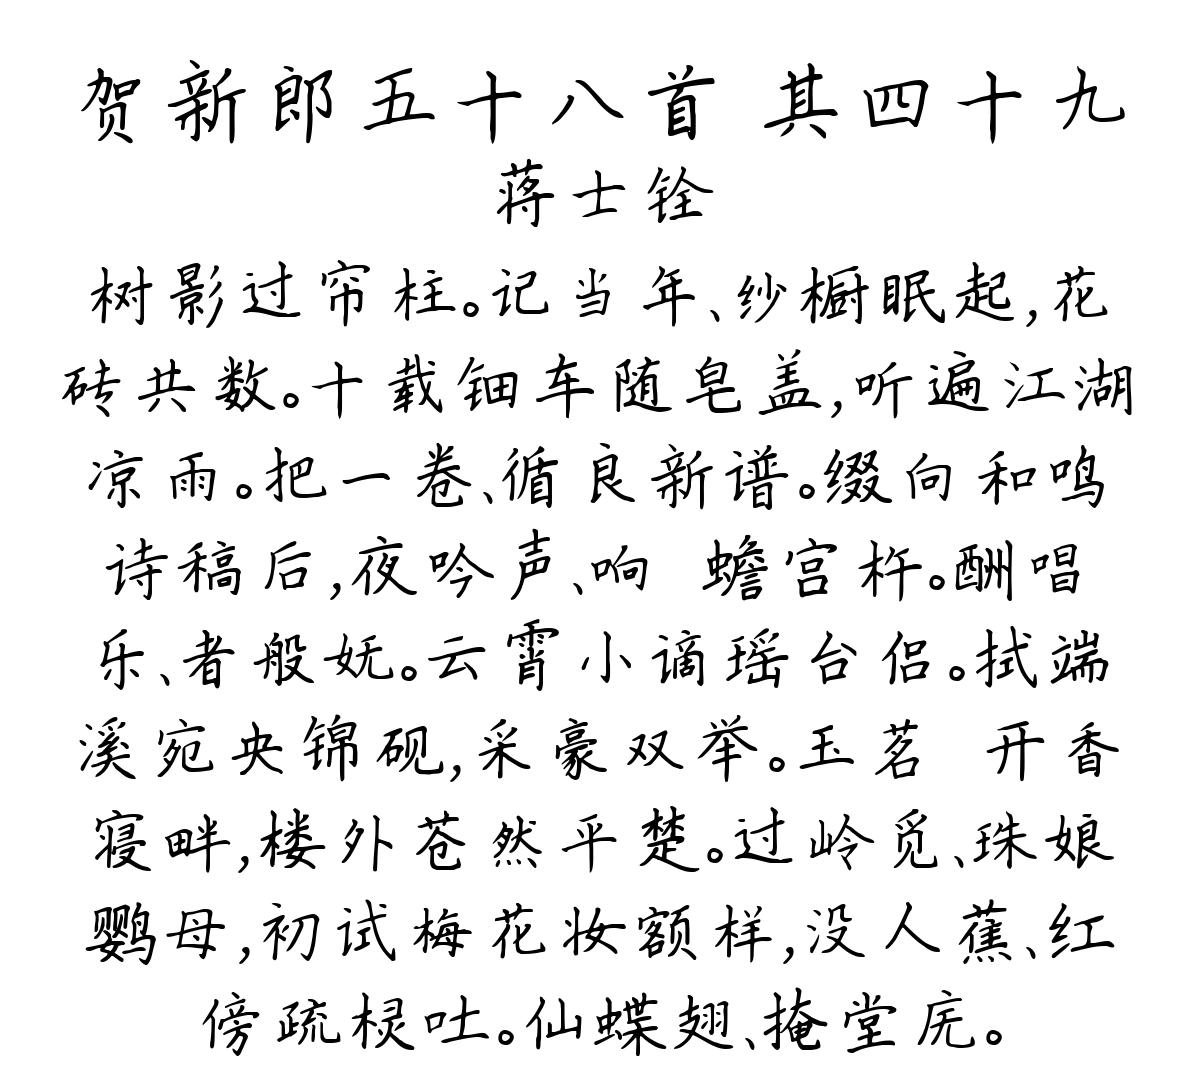 贺新郎五十八首 其四十九
蒋士铨
树影过帘柱。记当年、纱橱眠起,花
砖共数。十载钿车随皂盖,听遍江湖
凉雨。把一卷、循良新谱。缀向和鸣
诗稿后,夜吟声、响 蟾宫杵。酬唱
乐、者般妩。云霄小谪瑶台侣。拭端
溪宛央锦砚,采豪双举。玉茗 开香
寝畔,楼外苍然平楚。过岭觅、珠娘
鹦母,初试梅花妆额样,没人蕉、红
傍疏棂吐。仙蝶翅、掩堂庑。